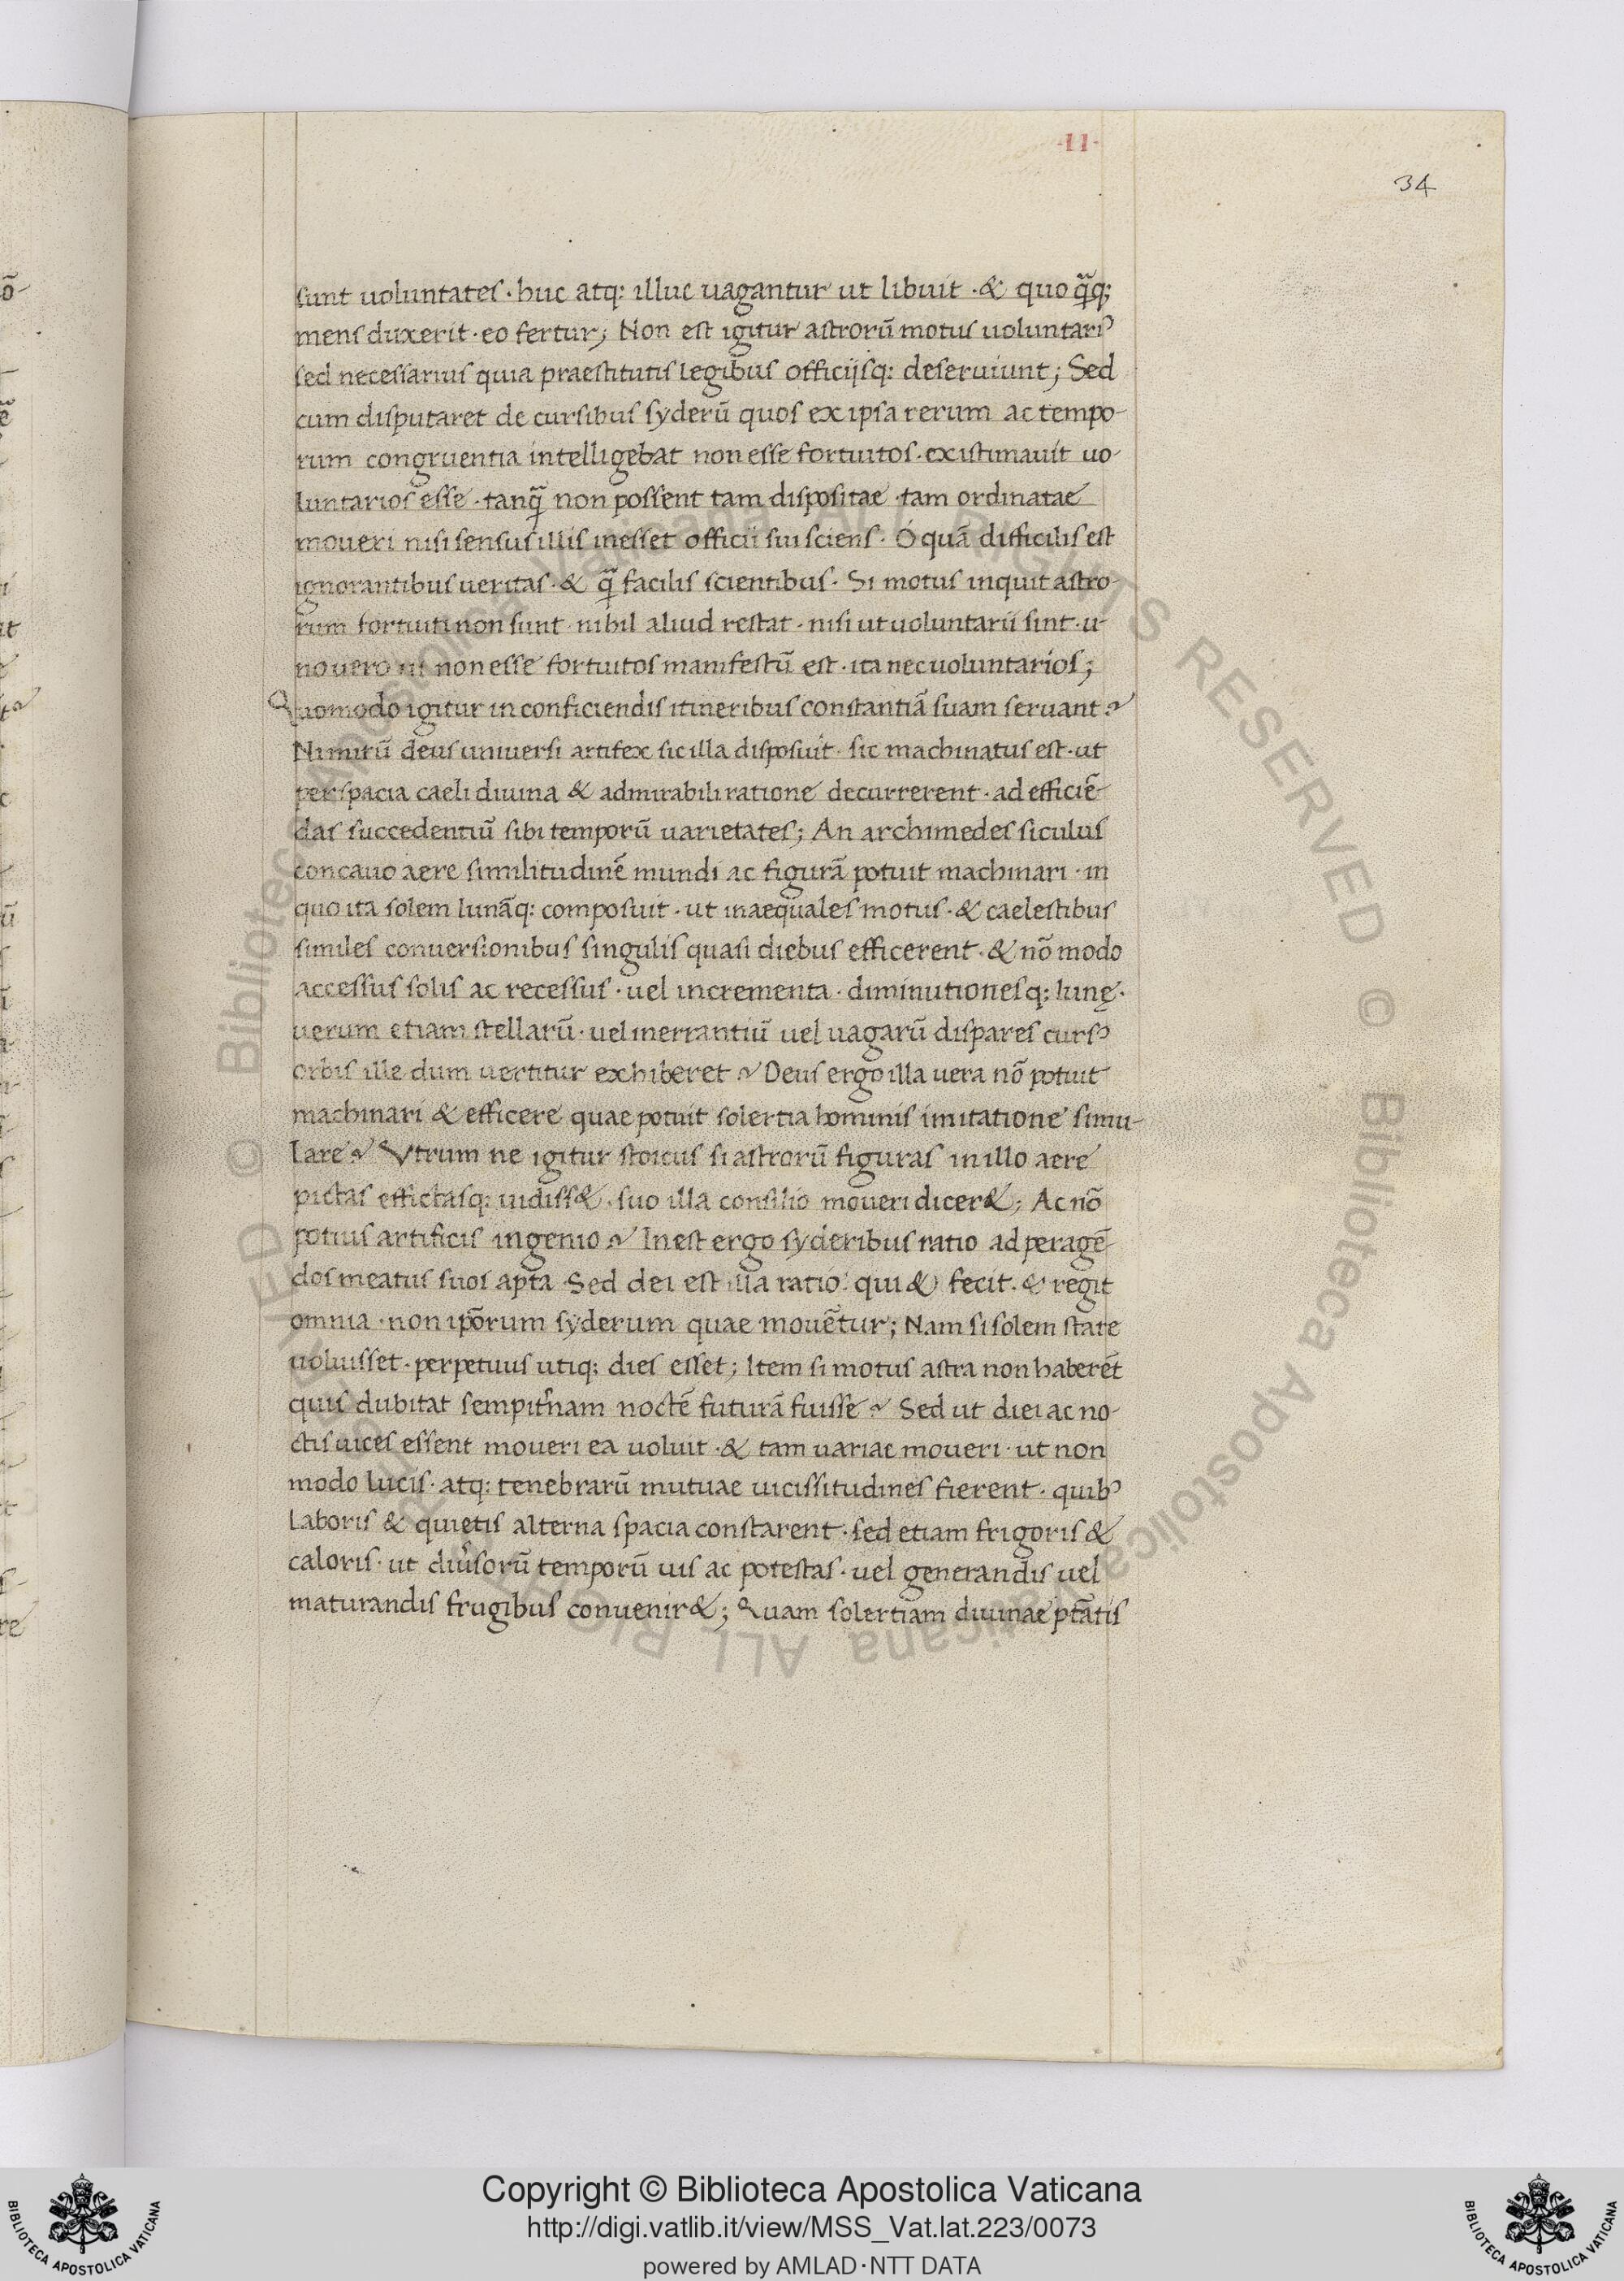 ·II·
34
sunt uoluntates · huc atq: illuc uagantur ut libuit · & quo q̃q;
mens duxerit · eo fertur; Non est igitur astrorũ motus uoluntariꝰ
sed necessarius quia praestitutis legibus officijsq: deseruiunt; Sed
cum disputaret de cursibus syderũ quos ex ipsa rerum ac tempo-
rum congruentia intelligebat non esse fortuitos · existimauit uo-
luntarios esse · tanq̃ non possent tam dispositae · tam ordinatae
moueri nisi sensus illis inesset officii sui sciens · Ó quã difficilis est
ignorantibus ueritas · & q̃ facilis scientibus · Si motus inquit astro-
rum fortuiti non sunt · nihil aliud restat · nisi ut uoluntarii sint · u-
no uero ut non esse fortuitos manifestũ est · ita nec uoluntarios;
Quomodo igitur in conficiendis itineribus constantiã suam seruant?
Nimirũ deus uniuersi artifex sic illa disposuit · sic machinatus est · ut
per spacia caeli diuina & admirabili ratione decurrerent · ad efficiẽ-
das succedentiũ sibi temporũ uarietates; An archimedes siculus
concauo aere similitudinẽ mundi ac figurã potuit machinari · in
quo ita solem lunãq: composuit · ut inaequales motus · & caelestibus
similes conuersionibus singulis quasi diebus efficerent · & nõ modo
accessus solis ac recessus · uel incrementa · diminutionesq: lunę ·
uerum etiam stellarũ · uel inerrantiũ uel uagarũ dispares cursꝰ
orbis ille dum uertitur exhiberet? Deus ergo illa uera nõ potuit
machinari & efficere quae potuit solertia hominis imitatione simu-
lare? Vtrum ne igitur stoicus si astrorũ figuras in illo aere
pictas effictasq: uidiss& · suo illa consilio moueri dicer&; Ac nõ
potius artificis ingenio? Inest ergo syderibus ratio ad peragẽ-
dos meatus suos apta · Sed dei est illa ratio · qui & fecit · & regit
omnia · non ip̃orum syderum quae mouẽtur; Nam si solem stare
uoluisset · perpetuus utiq; dies esset; Item si motus astra non haberẽt
quis dubitat sempit̃nam noctẽ futurã fuisse? Sed ut diei ac no-
ctis uices essent moueri ea uoluit · & tam uariae moueri · ut non
modo lucis · atq: tenebrarũ mutuae uicissitudines fierent · quibꝰ
laboris & quietis alterna spacia constarent · sed etiam frigoris &
caloris · ut diu̓sorũ temporũ uis ac potestas · uel generandis uel
maturandis frugibus conuenir&; Quam solertiam diuinae pt̃atis
Copyright © Biblioteca Apostolica Vaticana
http://digi.vatlib.it/view/MSS_Vat.lat.223/0073
powered by AMLAD·NTT DATA